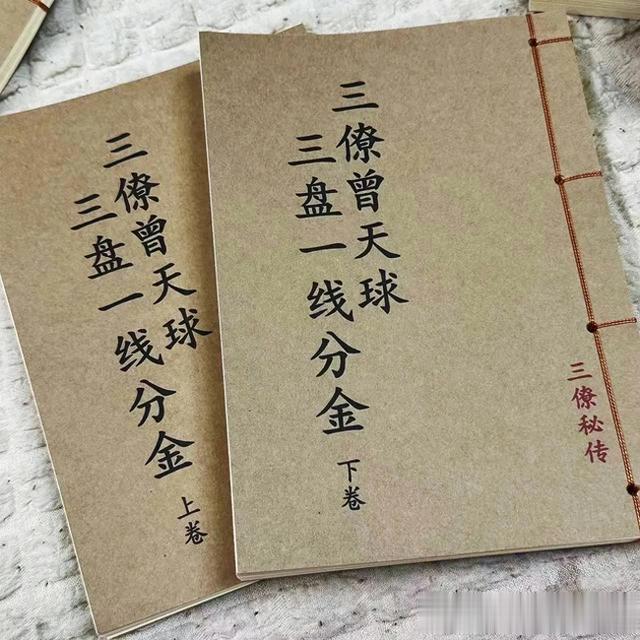 三僚曾天球
三盘一线分金
上卷
三僚曾天球
三盘一线分金
下卷
三僚秘传